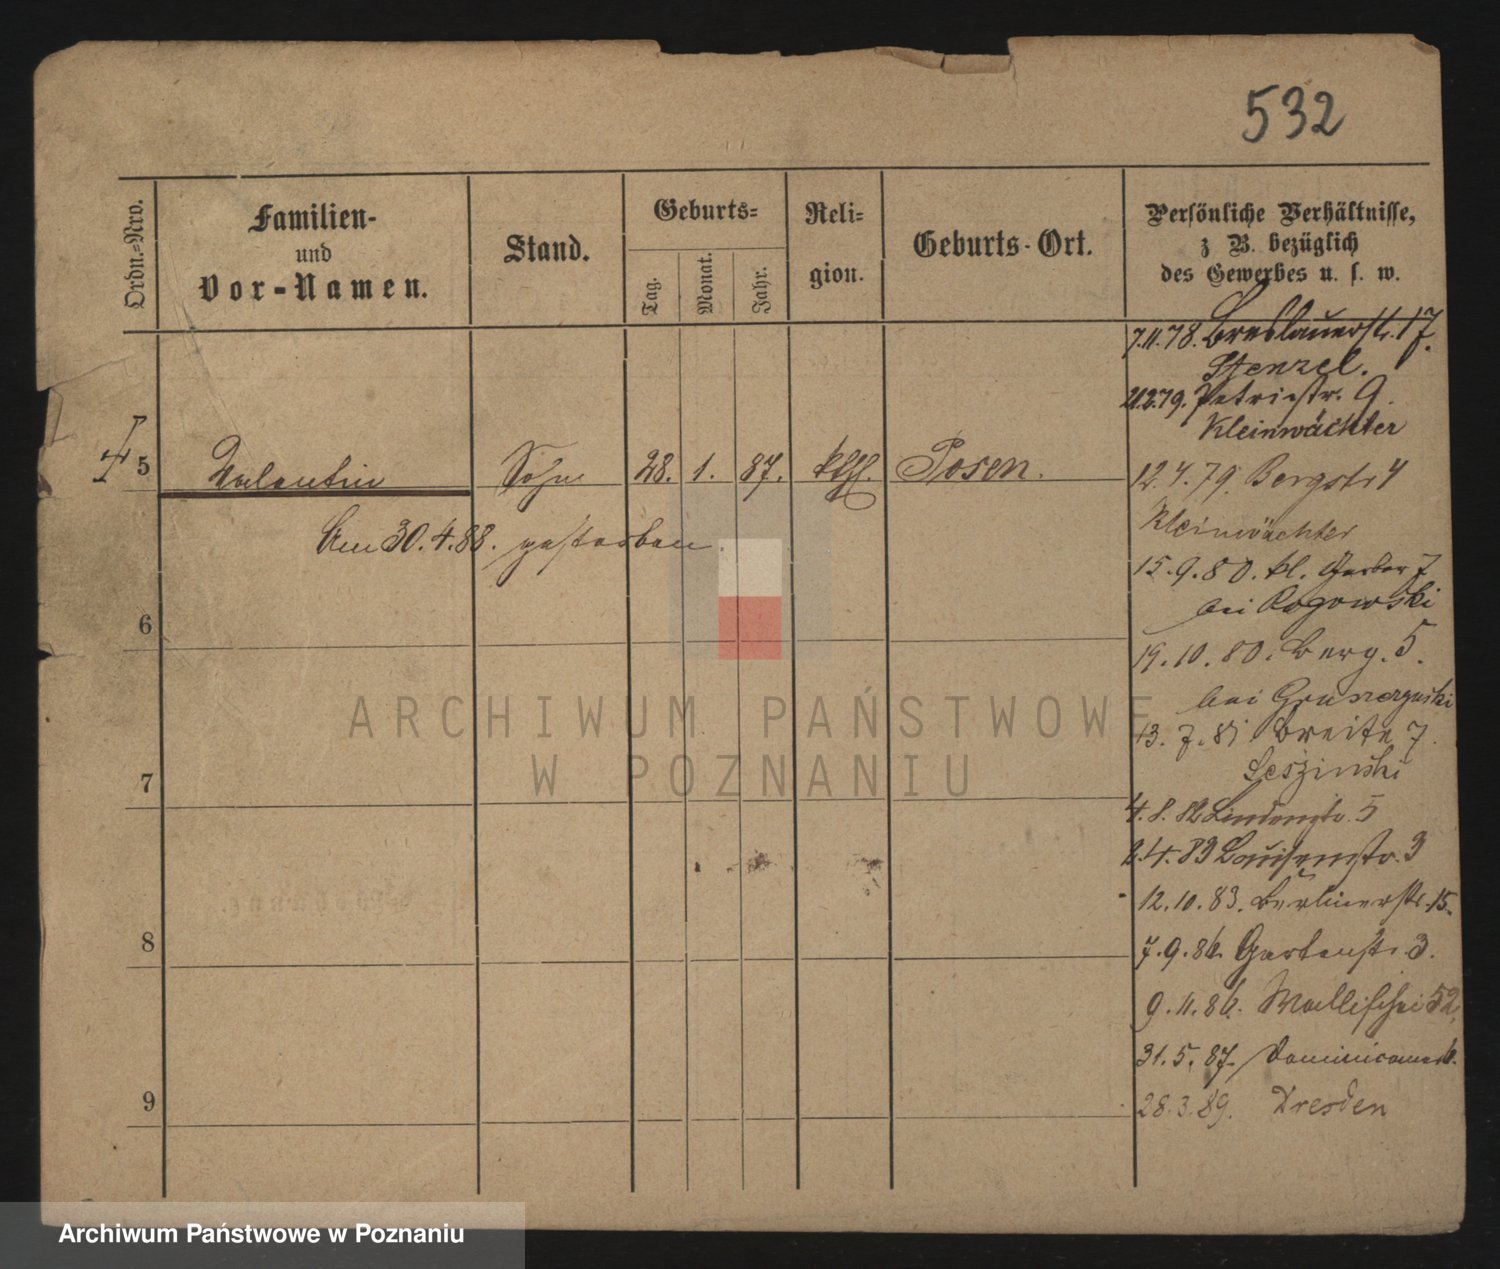 532
Ordn.=Nro.
Familien-
und
Vor-Namen.
Stand.
Geburts=
Tag.
Monat.
Jahr.
Reli=
gion.
Geburts-Ort.
Persönliche Verhältnisse,
z B. bezüglich
des Gewerbes u. s. w.
7.11.78. Breslauerstr. 17.
Stenzel.
Petristr. 9.
Kleinwächter
5 Valentin Sohn 28. 1. 87. kth. Posen.
12.4.79. Bergstr 4
Kleinwächter
Am 30.4.88. gestorben
15.9.80. kl. Gerber 7
bei Rogowski
6
19.10.80. Berg. 5.
bei
13.7.81 Breite 7.
Leszinski
7
4.8.82 Lindenstr. 5
2.4.83 Louisenstr. 3
12.10.83. Berlinerstr. 15.
8
7.9.86. Gartenstr. 3.
9.11.86. Wallischei 52.
31.5.87.
9
28.3.89. Dresden
ARCHIWUM PAŃSTWOWE
W POZNANIU
Archiwum Państwowe w Poznaniu